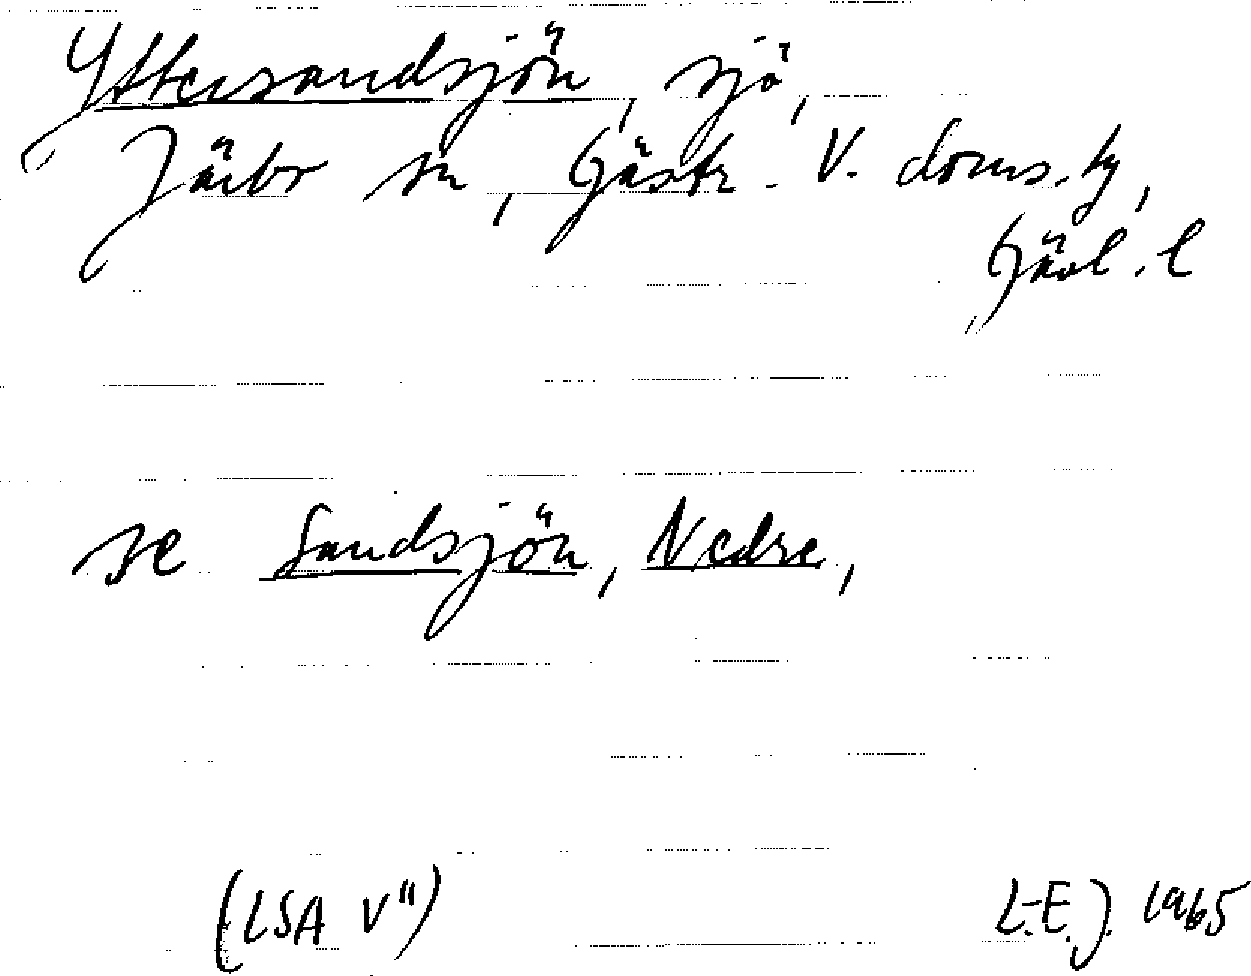 Yttersandsjön, sjö,
Järbo sn, Gästr. V. doms.hg,
Gävl. l
se Sandsjön, Nedre,
(LSA V")
L-E.J. 1965